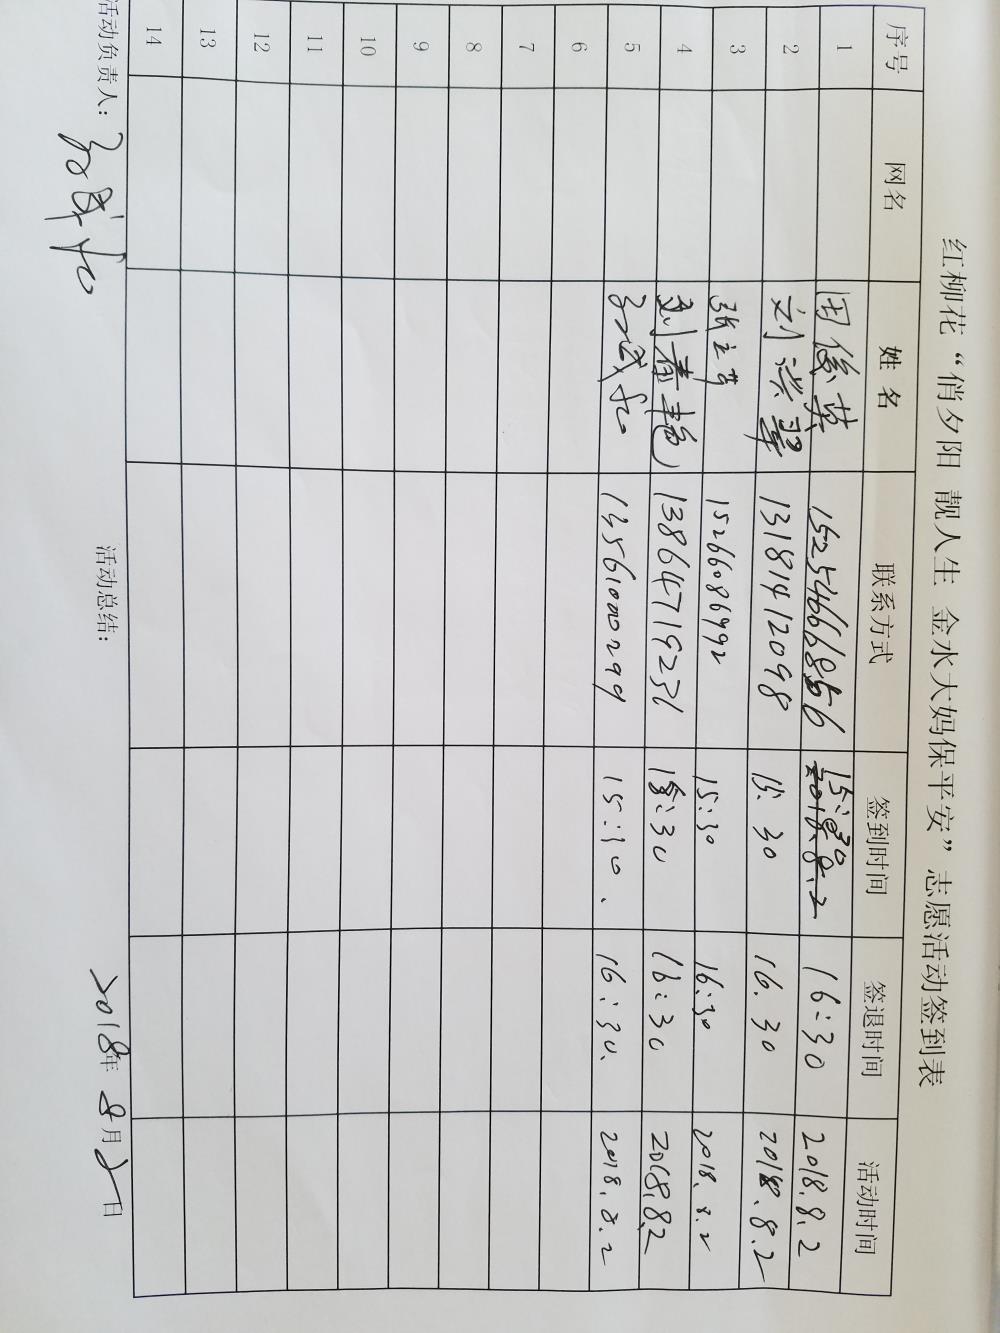 红柳花“俏夕阳 靓人生 金水大妈保平安”志愿活动签到表
序号 网名 姓名 联系方式 签到时间 签退时间 活动时间
1 田俊英 15:30 16:30 2018.8.2
2 刘洪翠 13181412098 15:30 16.30 2018.8.2
3 15266086992 15:30 16:30 2018.8.2
4 刘春艳 13864719231 15:30 16:30 2018.8.2
5 13561000299 15:30 16:30 2018.8.2
6
7
8
9
10
11
12
13
14
活动负责人: 活动总结: 2018年8月2日